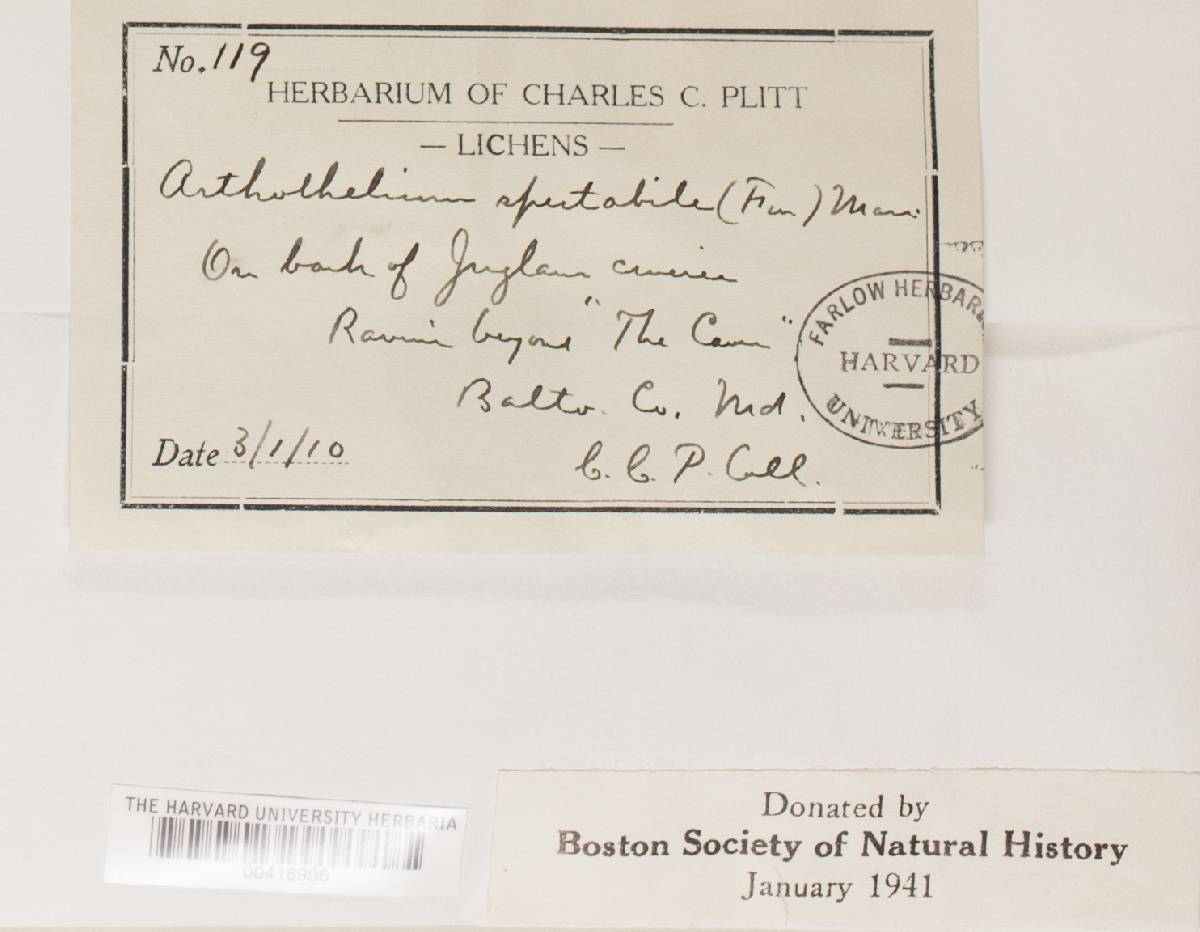 No. 119
HERBARIUM OF CHARLES C. PLITT
— LICHENS —
Arthothelium spectabile (Flm) Mass.
On bark of Juglans cinerea
Ravine beyond "The Cave"
Balto. Co. Md.
Date 3/1/10
C. C. P. Coll.
FARLOW HERBAR
HARVARD
UNIVERSITY
THE HARVARD UNIVERSITY HERBARIA
00418996
Donated by
Boston Society of Natural History
January 1941